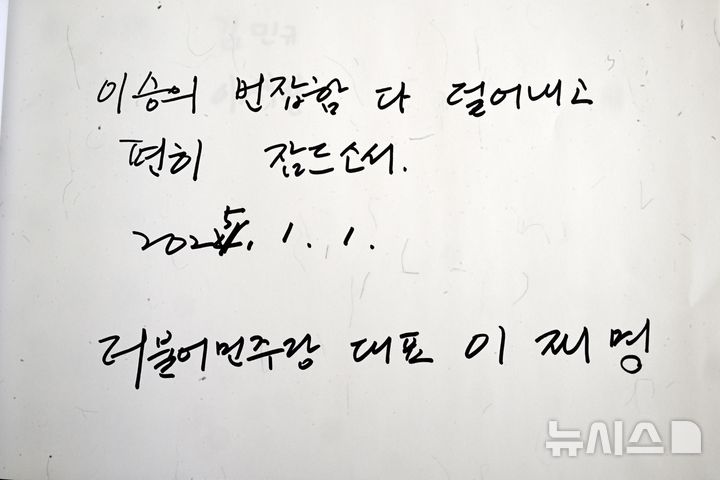 이승의 번잡함 다 덜어내고
편히 잠드소서.
2025. 1. 1.
더불어민주당 대표 이재명
뉴시스